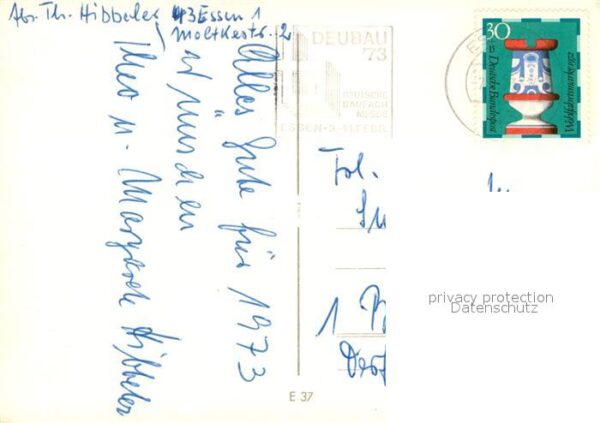 Abs. Th. Hibbeler 43 Essen 1
Moltkestr. 2
Alles Gute für 1973
wünschen
Theo u. Margarete Hibbeler
DEUBAU
'73
DEUTSCHE
BAUFACH
MESSE
ESSEN · 3.-11. FEBR.
30
Deutsche Bundespost
Wohlfahrtsmarke 1972
E
Frl.
1
privacy protection
Datenschutz
E 37